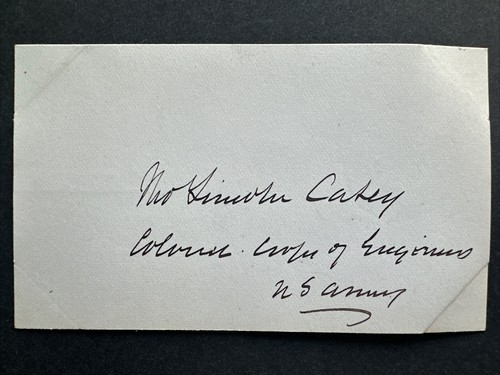 Tho Lincoln Casey
Colonel. Corps of Engineers
U S Army